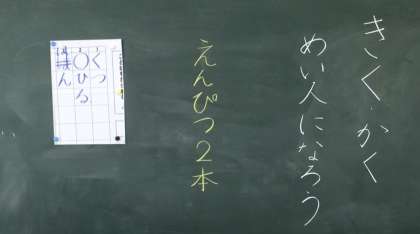 きく・かく
めい人になろう
えんぴつ2本
くつ
〇ひる